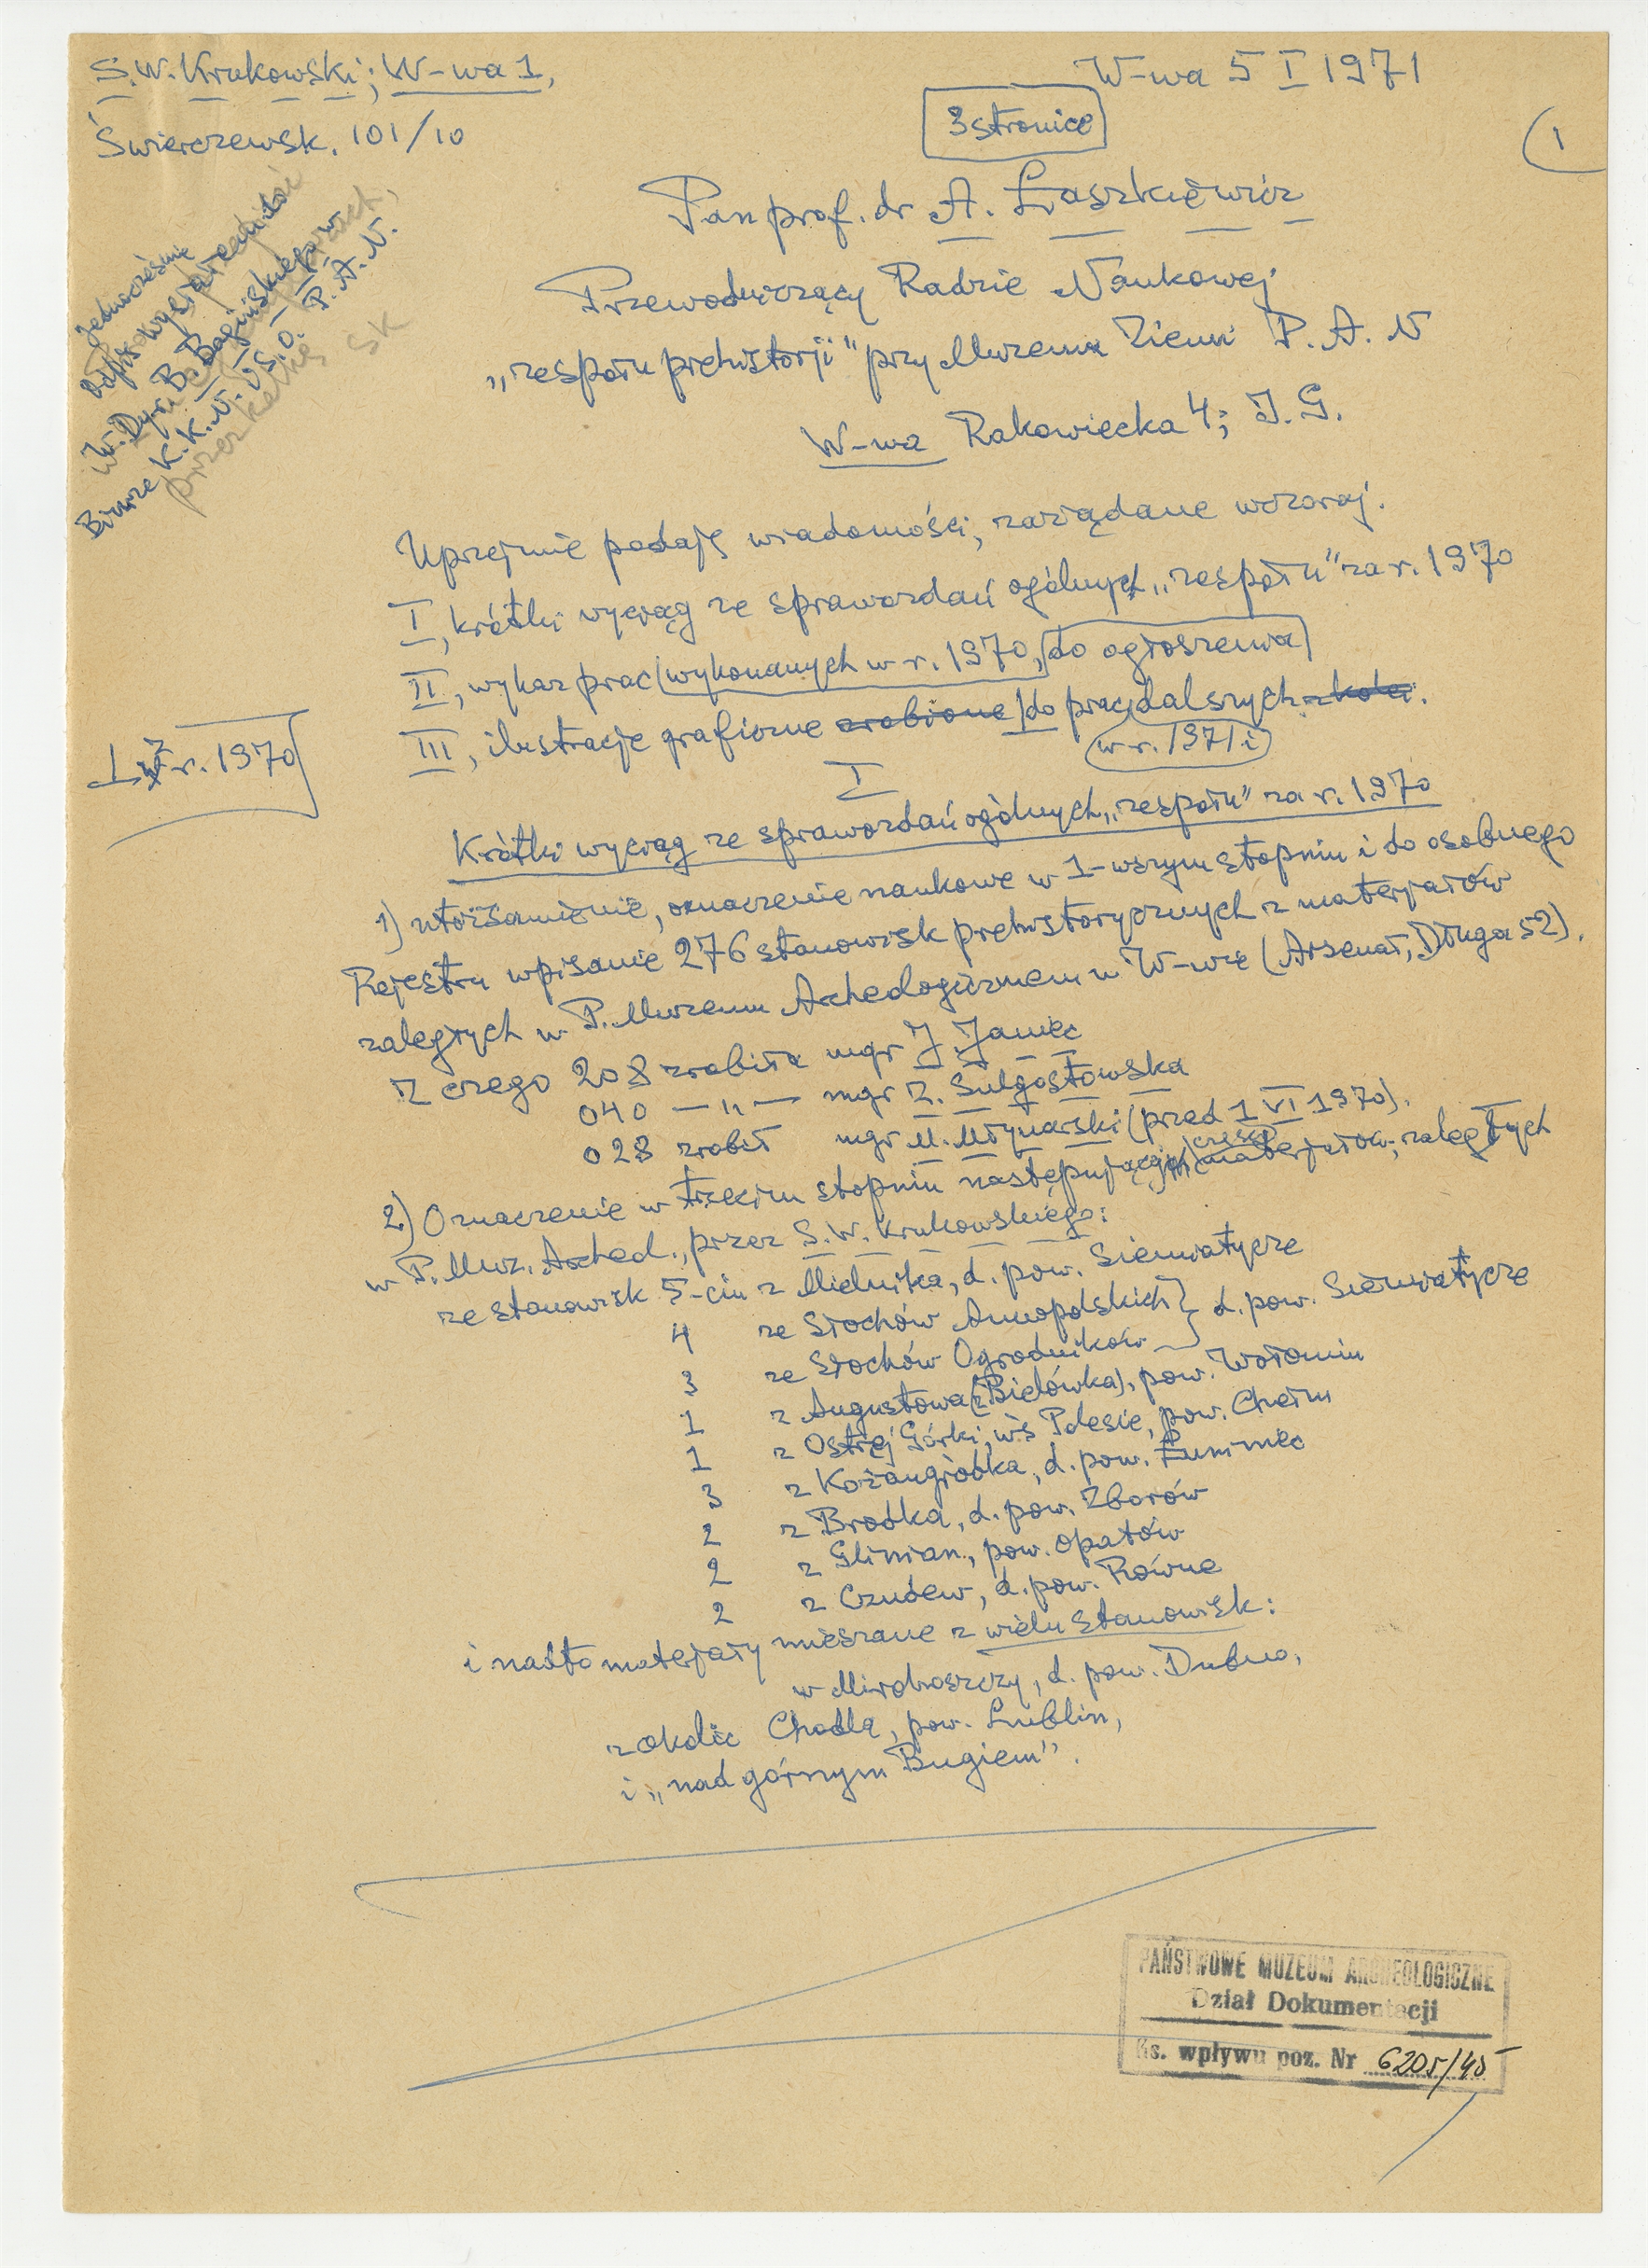 S.W. Krukowski; W-wa 1,
W-wa 5 I 1971
Świerczewsk. 101/10
3 stronice
1
Pan prof. dr A. Łaszkiewicz
Przewodniczący Radzie Naukowej
„zespołu prehistorji” przy Muzeum Ziemi P. A. N
W-wa Rakowiecka 4; I. G.
Jednocześnie
odpis wysłałem
W. Dyr. B. Bagińskiego w
Biurze K. K. N. U. S. O. P. A. N.
przez
SK
Uprzejmie podaję wiadomości, zażądane wczoraj.
I, krótki wyciąg ze sprawozdań ogólnych „zespołu” za r. 1970
II, wykaz prac wykonanych w r. 1970, do ogłoszenia
III, ilustracje graficzne zrobione do prac dalszych z kolei.
w r. 1971 i
z r. 1970
I
Krótki wyciąg ze sprawozdań ogólnych „zespołu” za r. 1970
1) utożsamienie, oznaczenie naukowe w 1-wszym stopniu i do osobnego
Rejestru wpisanie 276 stanowisk prehistorycznych z materjałów
zaległych w P. Muzeum Archeologicznem w W-wie (Arsenał, Długa 52).
Z czego 208 zrobiła mgr J. Janiec
040 — „ — mgr Z. Sulgostowska
028 zrobił mgr M. Młynarski (przed 1 VI 1970).
2) Oznaczenie w trzecim stopniu następujących materjałów, zaległych
w P. Muz. Archeol., przez S. W. Krukowskiego:
ze stanowisk 5-ciu z Mielnika, d. pow. Siemiatycze
4 ze Stochów Annopolskich } d. pow. Siemiatycze
3 ze Stochów Ogrodników
1 z Augustowa (z Bielówka), pow. Wołomin
1 z Ostrej Górki, wś Polesie, pow. Chełm
3 z Kożangródka, d. pow. Łuniniec
2 z Brodka, d. pow. Zborów
2 z Glinian, pow. Opatów
2 z Czudew, d. pow. Równe
i nadto materjały mieszane z wielu stanowisk:
w Mirohoszczy, d. pow. Dubno,
z okolic Chodla, pow. Lublin,
i „nad górnym Bugiem”.
PAŃSTWOWE MUZEUM ARCHEOLOGICZNE
Dział Dokumentacji
Ks. wpływu poz. Nr 6205/45